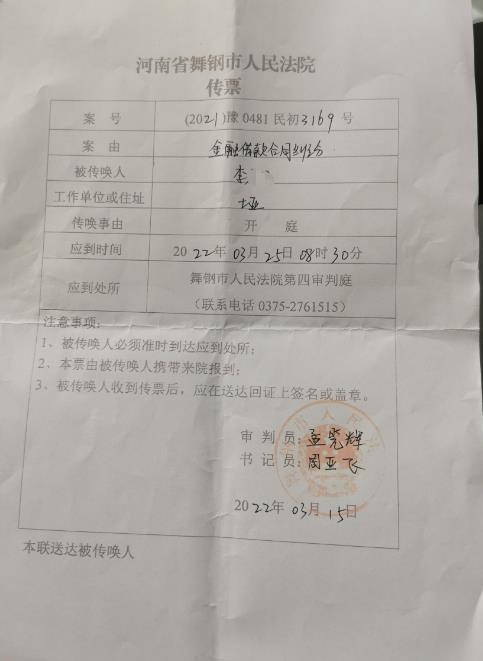 河南省舞钢市人民法院
传票
案 号 (2021)豫0481民初3169号
案 由 金融借款合同纠纷
被传唤人 李
工作单位或住址
传唤事由 开 庭
应到时间 2022年03月25日08时30分
应到处所 舞钢市人民法院第四审判庭
(联系电话 0375-2761515)
注意事项:
1、被传唤人必须准时到达应到处所;
2、本票由被传唤人携带来院报到;
3、被传唤人收到传票后,应在送达回证上签名或盖章。
审 判 员:孟晓辉
书 记 员:周亚飞
2022年03月15日
本联送达被传唤人